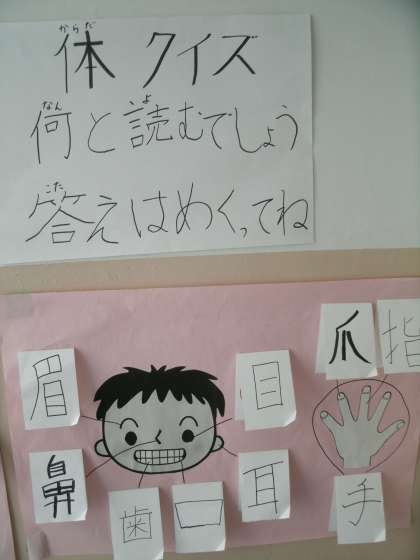 からだ
体 クイズ
なん よ
何と読むでしょう
こた
答えはめくってね
爪 指
眉 目
鼻 耳 手
歯 口